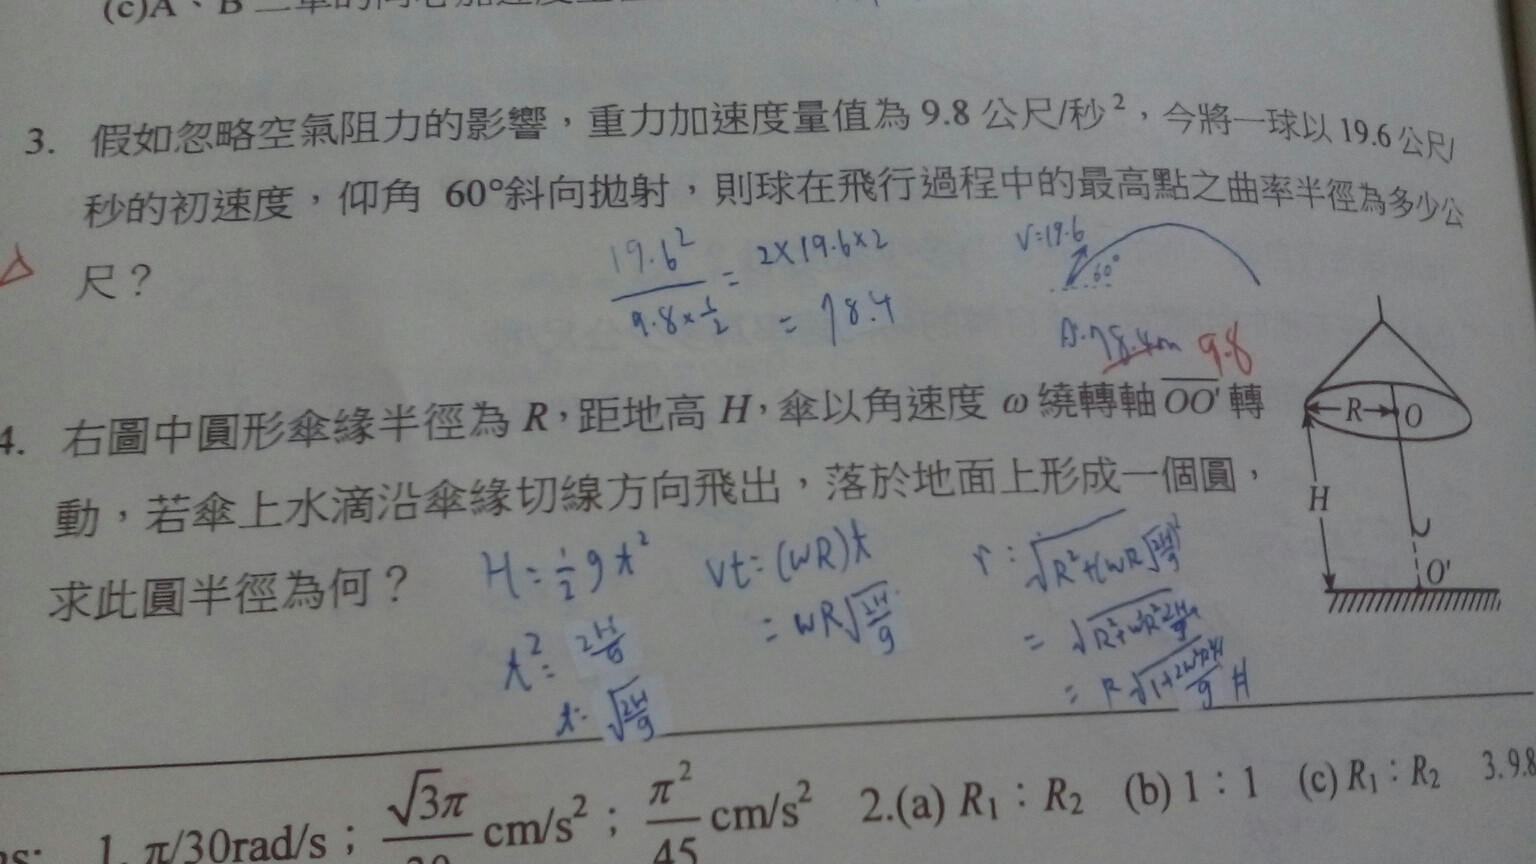 (c)A、B
3. 假如忽略空氣阻力的影響，重力加速度量值為 9.8 公尺/秒²，今將一球以 19.6 公尺/
秒的初速度，仰角 60°斜向拋射，則球在飛行過程中的最高點之曲率半徑為多少公
尺？
19.6² / 9.8×½ = 2×19.6×2
= 78.4
V=19.6
60°
78.4m 9.8
4. 右圖中圓形傘緣半徑為 R，距地高 H，傘以角速度 ω 繞轉軸 OO' 轉
動，若傘上水滴沿傘緣切線方向飛出，落於地面上形成一個圓，
求此圓半徑為何？
R O
H
O'
H=½gt² vt=(wR)t r:√R²+(wR√2H/g)²
t²=2H/g =wR√2H/g =√R²+w²R²2H/g
t=√2H/g
1. π/30rad/s； √3π cm/s²； π²/45 cm/s² 2.(a) R₁：R₂ (b) 1：1 (c) R₁：R₂ 3. 9.8